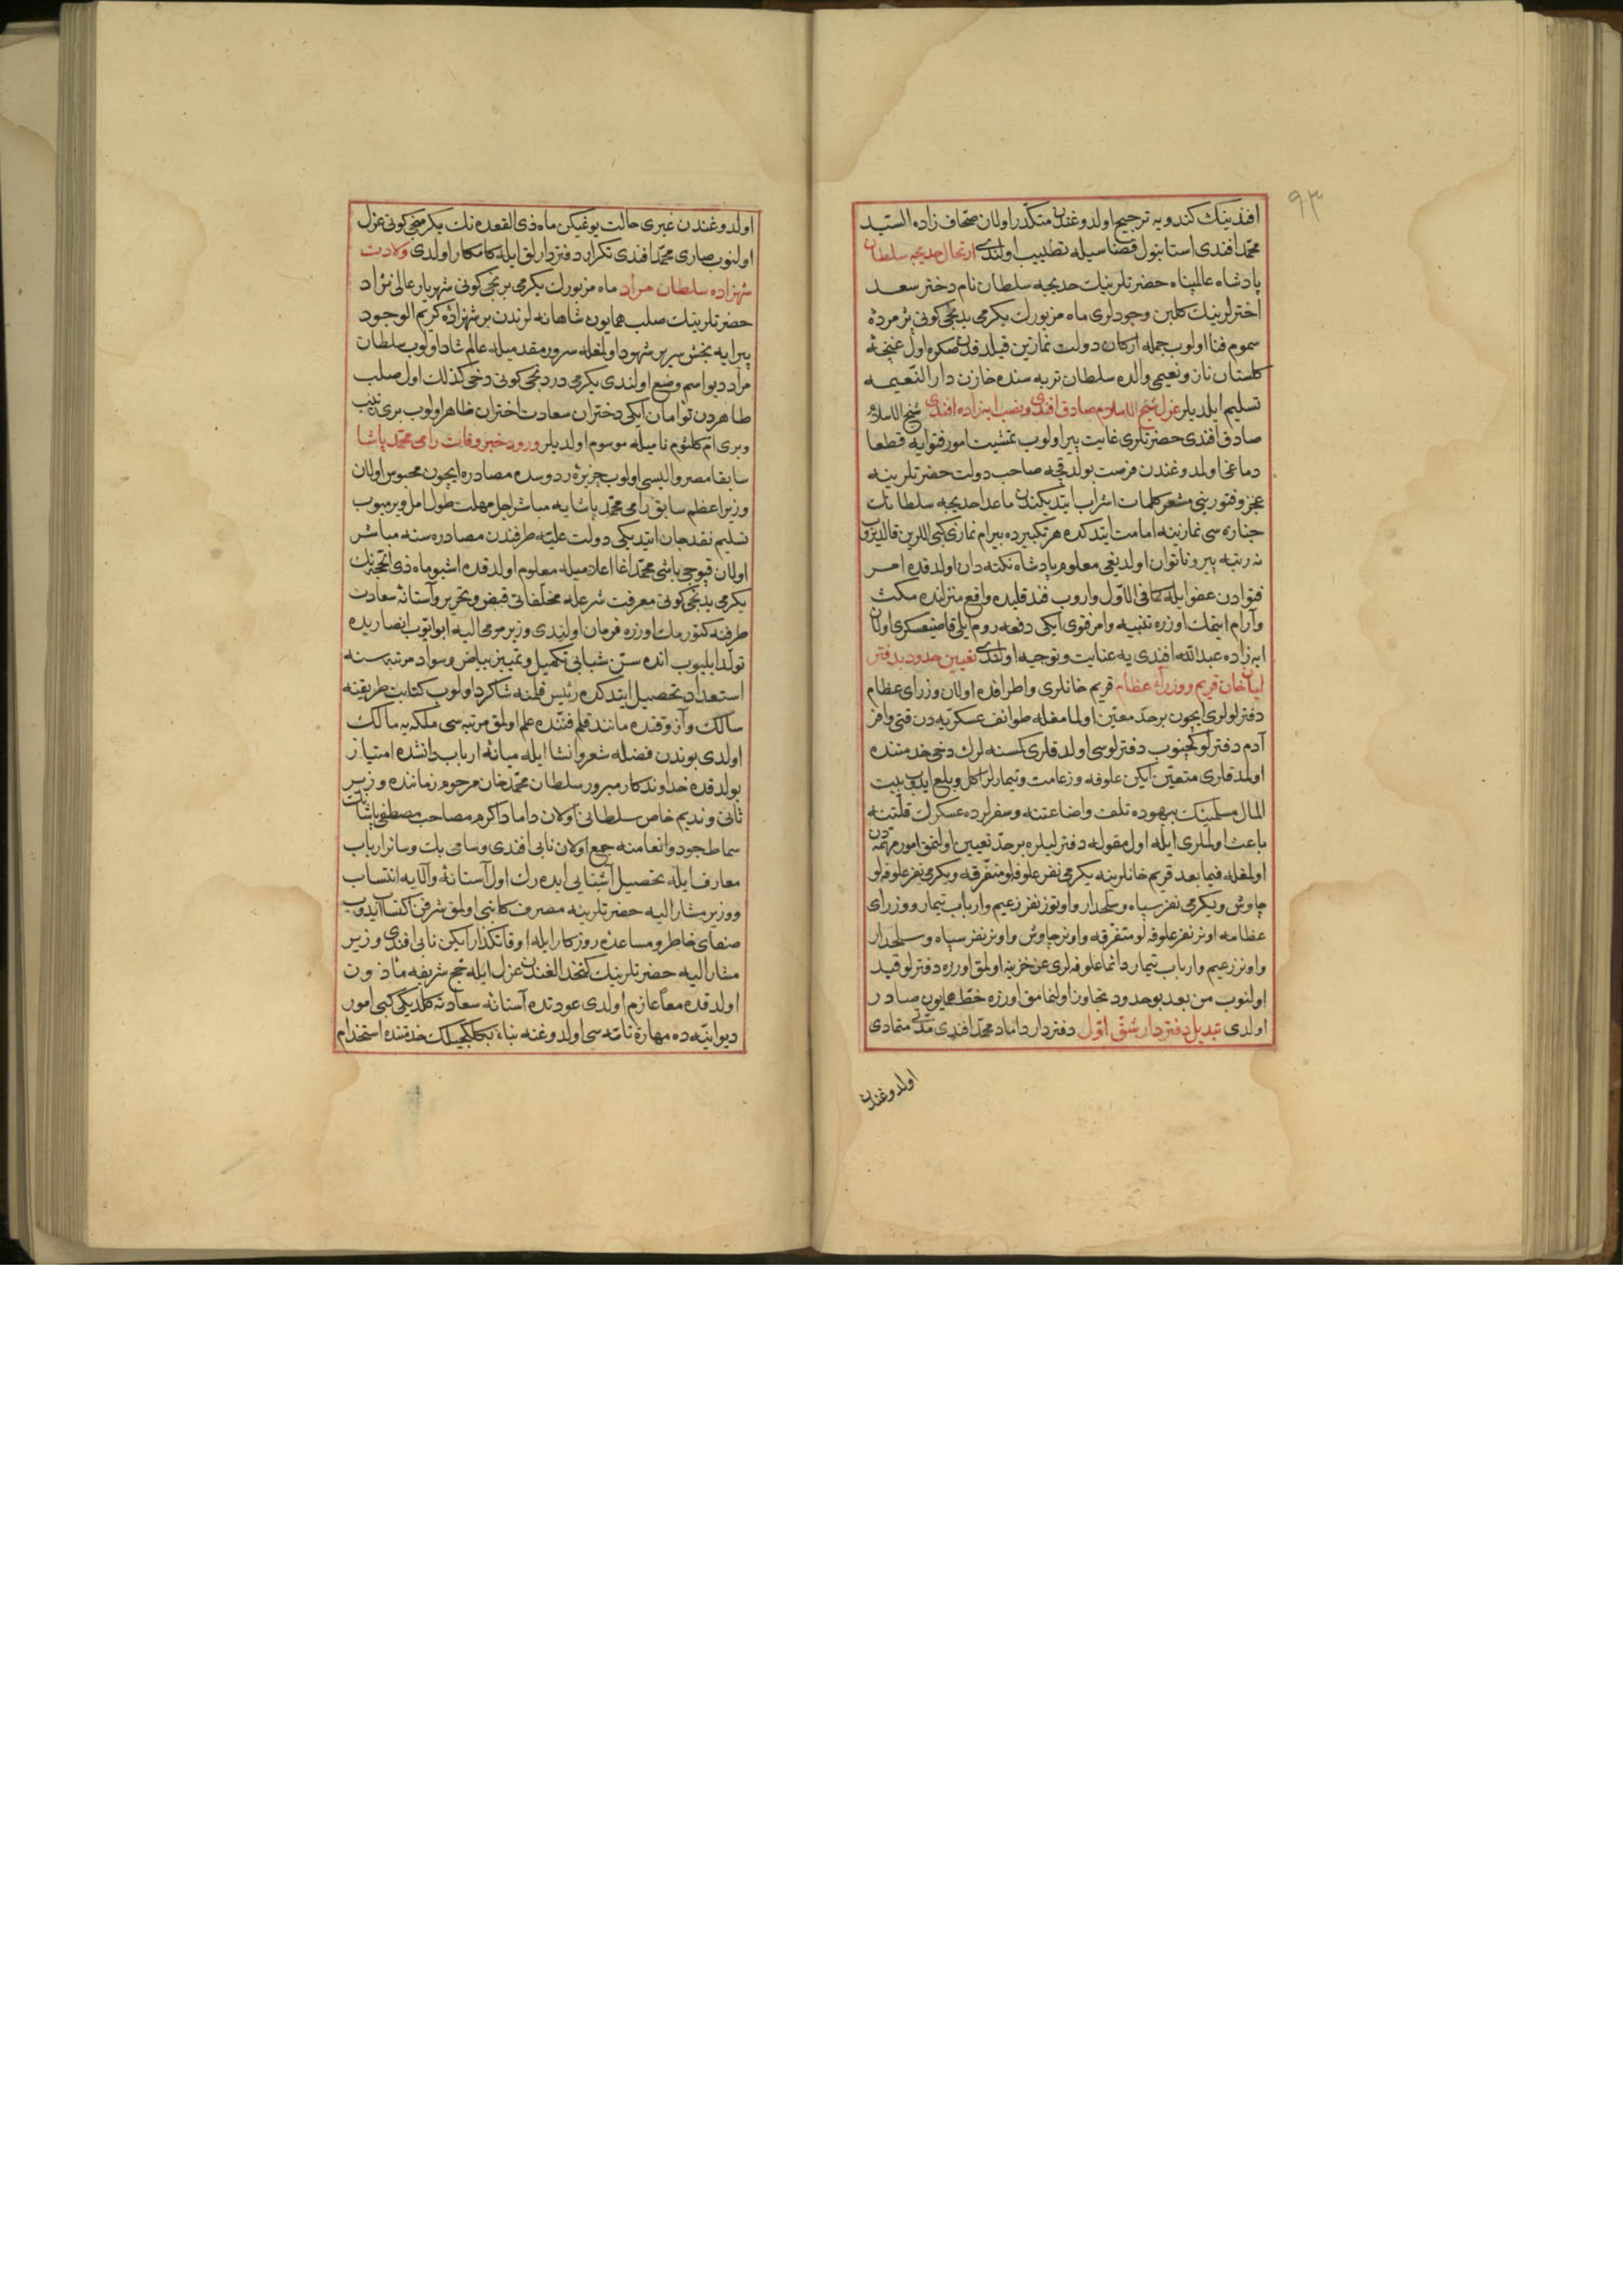 ٩٣
افندینك كندویه ترجیح اولدوغندن متكدّر اولان صحّاف زاده السّید
محمّد افندی استانبول قضاسیله تطییب اولندی ارتحال خدیجه سلطان
پادشاه عالمپناه حضرتلرینك خدیجه سلطان نام دختر سعد
اخترلرینك كلبن وجودلری ماه مزبورك یكرمی یدنجی كونی پژمردهٔ
سموم فنا اولوب جمله اركان دولت نمازین قیلدقدن صكره اول غنچهٔ
كلستان ناز و نعیمی والده سلطان تربه سنده خازن دار النّعیمه
تسلیم ایلدیلر عزل شیخ الاسلام صادق افندی و نصب ابه زاده افندی شیخ الاسلام
صادق افندی حضرتلری غایت پیر اولوب تمشیت امور فتوایه قطعا
دماغی اولدوغندن فرصت بولدقجه صاحب دولت حضرتلرینه
عجز و فتورینی مشعر كلمات اشراب ایتدیكندن ماعدا خدیجه سلطانك
جنازه سی نمازینه امامت ایتدكده هر تكبیرده بیرام نمازی كبی اللرین قالدیروب
نه رتبه پیر و ناتوان اولدیغی معلوم پادشاه نكته دان اولدقده امر
فتوادن عفو ایله كما فی الاوّل واروب فندقلیده واقع منزلنده مكث
و آرام ایتمك اوزره تنبیه و امر فتوی ایكی دفعه روم ایلی قاضیعسكری اولان
ابه زاده عبدالله افندی یه عنایت و توجیه اولندی تعیین حدود بدفتر
لیان خان قریم و وزرای عظام قریم خانلری و اطرافده اولان وزرای عظام
دفترلولری ایچون بر حدّ معیّن اولمامغله طوائف عسكریّه دن قتی وافر
آدم دفترلو كچنوب دفترلوسی اولدقلری كمسنه لرك دخی خدمتنده
اولدقلری متعیّن ایكن علوفه و زعامت و تیمارلر اكل و بلع ایدوب بیت
المال مسلمینك بیهوده تلف و اضاعتنه و سفرلرده عسكرك قلّتنه
باعث اولملری ایله اول مقوله دفترلیلره بر حدّ تعیین اولنمق امور مهمّه دن
اولمغله فیما بعد قریم خانلرینه یكرمی نفر علوفه لو متفرّقه و یكرمی نفر علوفه لو
چاوش و یكرمی نفر سپاه و سلحدار و اوتوز نفر زعیم و ارباب تیمار و وزرای
عظامه اونر نفر علوفه لو متفرّقه و اونر چاوش و اونر نفر سپاه و سلحدار
و اونر زعیم و ارباب تیمار دائما علوفه لری عن خزینه اولمق اوزره دفترلو قید
اولنوب من بعد بو حدود تجاوز اولنمامق اوزره خطّ همایون صادر
اولدی تبدیل دفتردار شقّ اوّل دفتردار داماد محمّد افندی متمادی
اولدوغندن
اولدوغندن غیری حالت یوغیكن ماه ذی القعده نك یكرمنجی كونی عزل
اولنوب صاری محمّد افندی تكرار دفتردارلق ایله كامكار اولدی ولادت
شهزاده سلطان مراد ماه مزبورك یكرمی برنجی كونی شهریار عالی نژاد
حضرتلرینك صلب همایون شاهانه لرندن بر شهزادهٔ كریم الوجود
پیرایه بخش سریر شهود اولمغله سرور مقدمیله عالم شاد اولوب سلطان
مراد دیو اسم وضع اولندی یكرمی دردنجی كونی دخی كذلك اول صلب
طاهردن توأمان ایكی دختران سعادت اختران ظاهر اولوب بری زینب
و بری امّ كلثوم نامیله موسوم اولدیلر ورود خبر وفات رامی محمّد پاشا
سابقا مصر والیسی اولوب جزیرهٔ ردوسده مصادره ایچون محبوس اولان
وزیر اعظم سابق رامی محمّد پاشایه مباشر اجل مهلت طول امل ویرمیوب
تسلیم نقد جان ایتدیكی دولت علیّه طرفندن مصادره سنه مباشر
اولان قپوجی باشی محمّد اغا اعلامیله معلوم اولدقده اشبو ماه ذی الحجّه نك
یكرمی یدنجی كونی معرفت شرعله مخلّفاتی قبض و تحریر و آستانهٔ سعادت
طرفنه كتورمك اوزره فرمان اولندی وزیر مومی الیه ابو ایّوب انصاریده
تولّد ایلیوب انده سنّ شبابی تكمیل و تمییز بیاض و سواد مرتبه سنه
استعداد تحصیل ایتدكده رئیس قلمنه شاكرد اولوب كتابت طریقنه
سالك و آز وقتده مانند قلم فنّنده علم اولمق مرتبه سی ملكه یه مالك
اولدی بوندن فضله شعر و انشا ایله میانهٔ ارباب دانشده امتیاز
بولدقده خداوندكار مبرور سلطان محمّد خان مرحوم زماننده وزیر
ثانی و ندیم خاص سلطانی اولان داماد اكرم مصاحب مصطفی پاشانك
سماط جود و انعامنه جمع اولان نابی افندی و سامی بك و سائر ارباب
معارف ایله تحصیل آشنایی ایده رك اول آستانهٔ والایه انتساب
و وزیر مشار الیه حضرتلرینه مصرف كاتبی اولمق شرفن اكتساب ایدوب
صفای خاطر و مساعدهٔ روزكار ایله اوقاتكذار ایكن نابی افندی وزیر
مشار الیه حضرتلرینك كتخدالغندن عزل ایله حجّ شریفه مأذون
اولدقده معاً عازم اولدی عودتده آستانهٔ سعادته كلدیكی كبی امور
دیوانیّه ده مهارة تامّه سی اولدوغنه بناءً بكلكجیلك خدمتنده استخدام